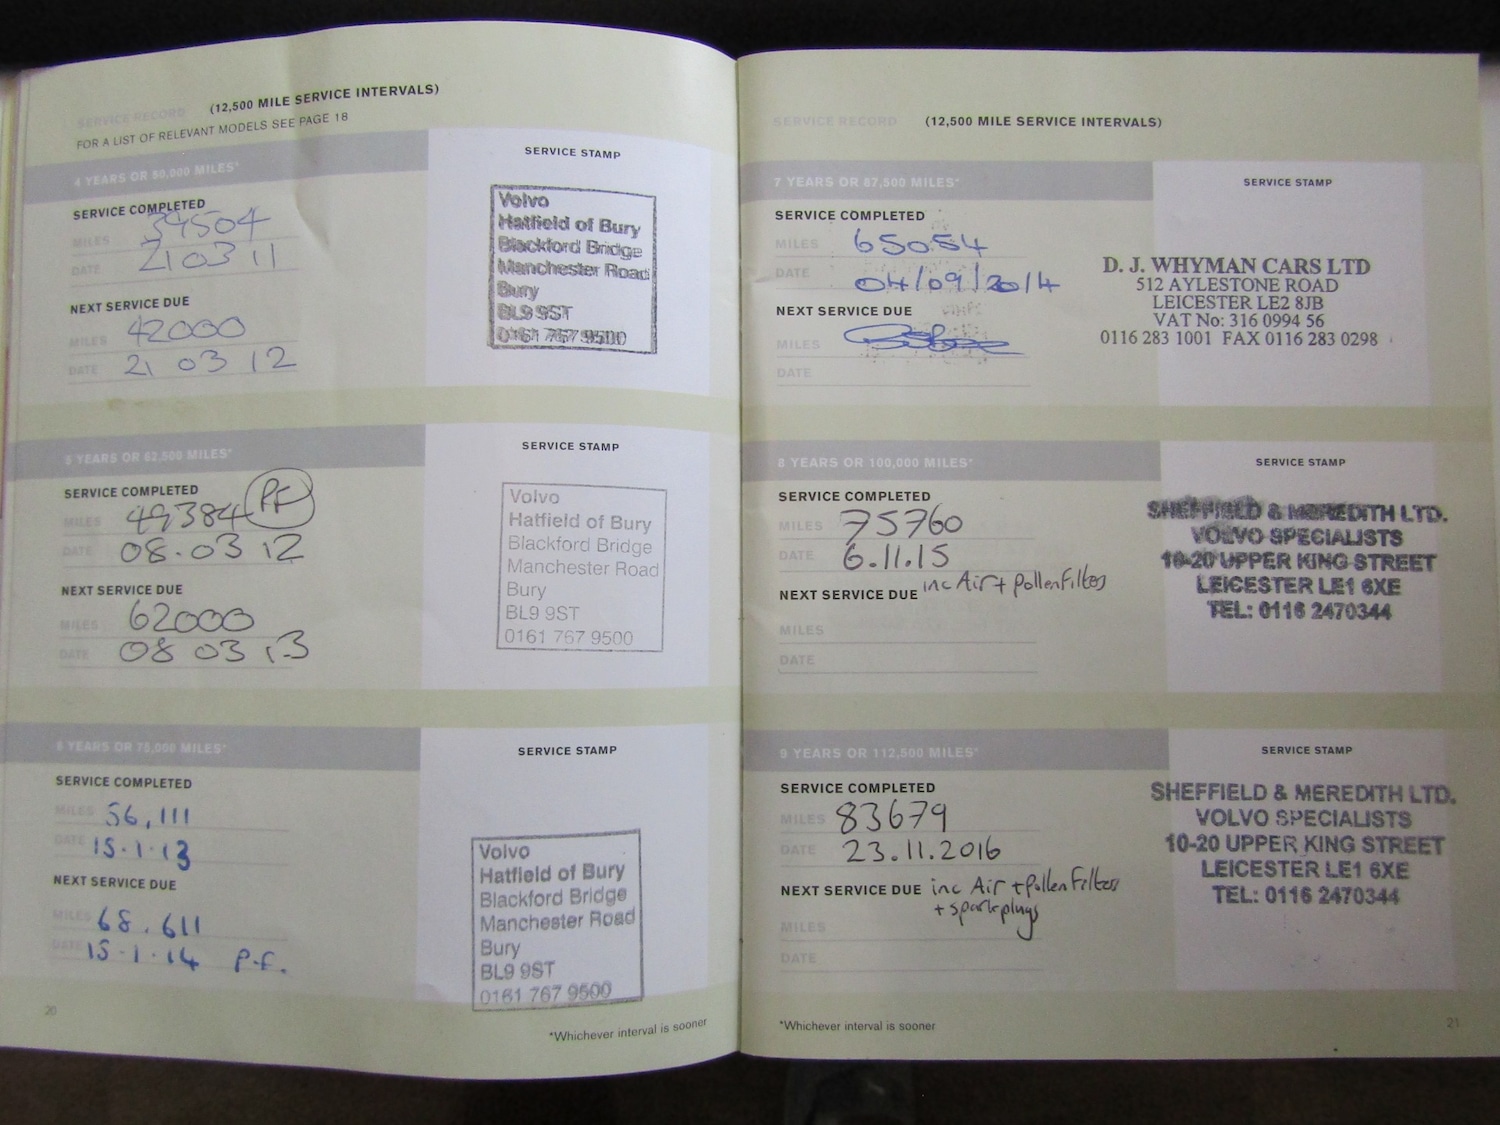 SERVICE RECORD (12,500 MILE SERVICE INTERVALS)
FOR A LIST OF RELEVANT MODELS SEE PAGE 18
4 YEARS OR 50,000 MILES*
SERVICE COMPLETED
MILES 39504
DATE 21 03 11
NEXT SERVICE DUE
MILES 42000
DATE 21 03 12
SERVICE STAMP
Volvo
Hatfield of Bury
Blackford Bridge
Manchester Road
Bury
BL9 9ST
0161 767 9500
5 YEARS OR 62,500 MILES*
SERVICE COMPLETED
MILES 49384 PF
DATE 08.03 12
NEXT SERVICE DUE
MILES 62000
DATE 08 03 13
SERVICE STAMP
Volvo
Hatfield of Bury
Blackford Bridge
Manchester Road
Bury
BL9 9ST
0161 767 9500
6 YEARS OR 75,000 MILES*
SERVICE COMPLETED
MILES 56,111
DATE 15.1.13
NEXT SERVICE DUE
MILES 68.611
DATE 15.1.14 P.F.
SERVICE STAMP
Volvo
Hatfield of Bury
Blackford Bridge
Manchester Road
Bury
BL9 9ST
0161 767 9500
20
*Whichever interval is sooner
SERVICE RECORD (12,500 MILE SERVICE INTERVALS)
7 YEARS OR 87,500 MILES*
SERVICE COMPLETED
MILES 65054
DATE 04/09/2014
NEXT SERVICE DUE
MILES
DATE
SERVICE STAMP
D. J. WHYMAN CARS LTD
512 AYLESTONE ROAD
LEICESTER LE2 8JB
VAT No: 316 0994 56
0116 283 1001 FAX 0116 283 0298
8 YEARS OR 100,000 MILES*
SERVICE COMPLETED
MILES 75760
DATE 6.11.15
NEXT SERVICE DUE inc Air + pollen Filter
MILES
DATE
SERVICE STAMP
SHEFFIELD & MEREDITH LTD.
VOLVO SPECIALISTS
10-20 UPPER KING STREET
LEICESTER LE1 6XE
TEL: 0116 2470344
9 YEARS OR 112,500 MILES*
SERVICE COMPLETED
MILES 83679
DATE 23.11.2016
NEXT SERVICE DUE inc Air + pollen Filter
+ spark plugs
MILES
DATE
SERVICE STAMP
SHEFFIELD & MEREDITH LTD.
VOLVO SPECIALISTS
10-20 UPPER KING STREET
LEICESTER LE1 6XE
TEL: 0116 2470344
*Whichever interval is sooner
21